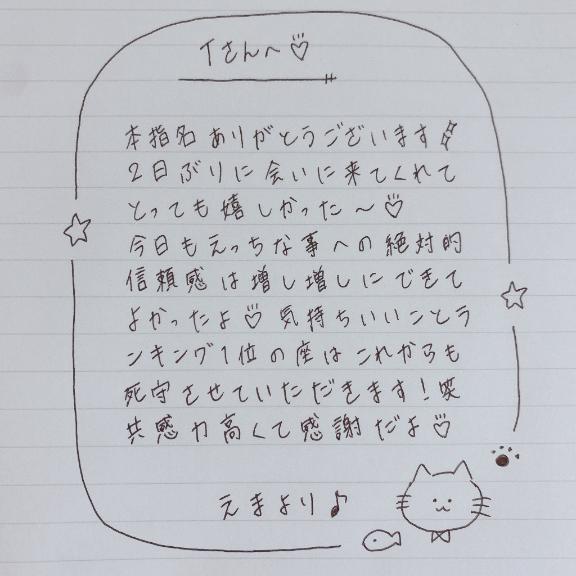 Tさんへ♡
本指名ありがとうございます
2日ぶりに会いに来てくれて
とっても嬉しかった〜♡
今日もえっちな事への絶対的
信頼感は増し増しにできて
よかったよ♡ 気持ちいいことラ
ンキング1位の座はこれからも
死守させていただきます!笑
共感力高くて感謝だよ♡
えまより♪